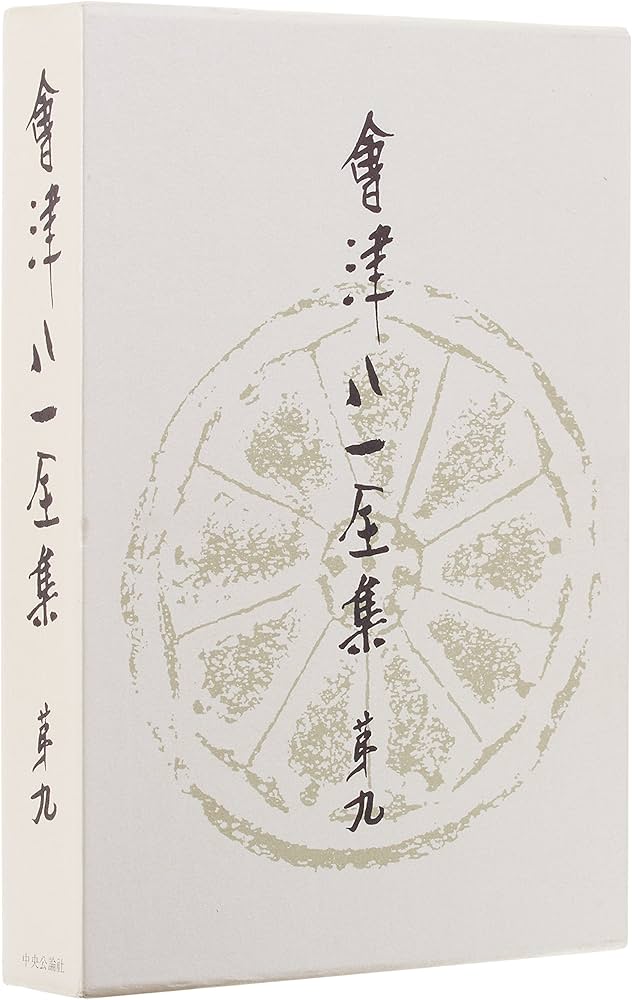 會津八一全集 第九
中央公論社
會津八一全集 第九